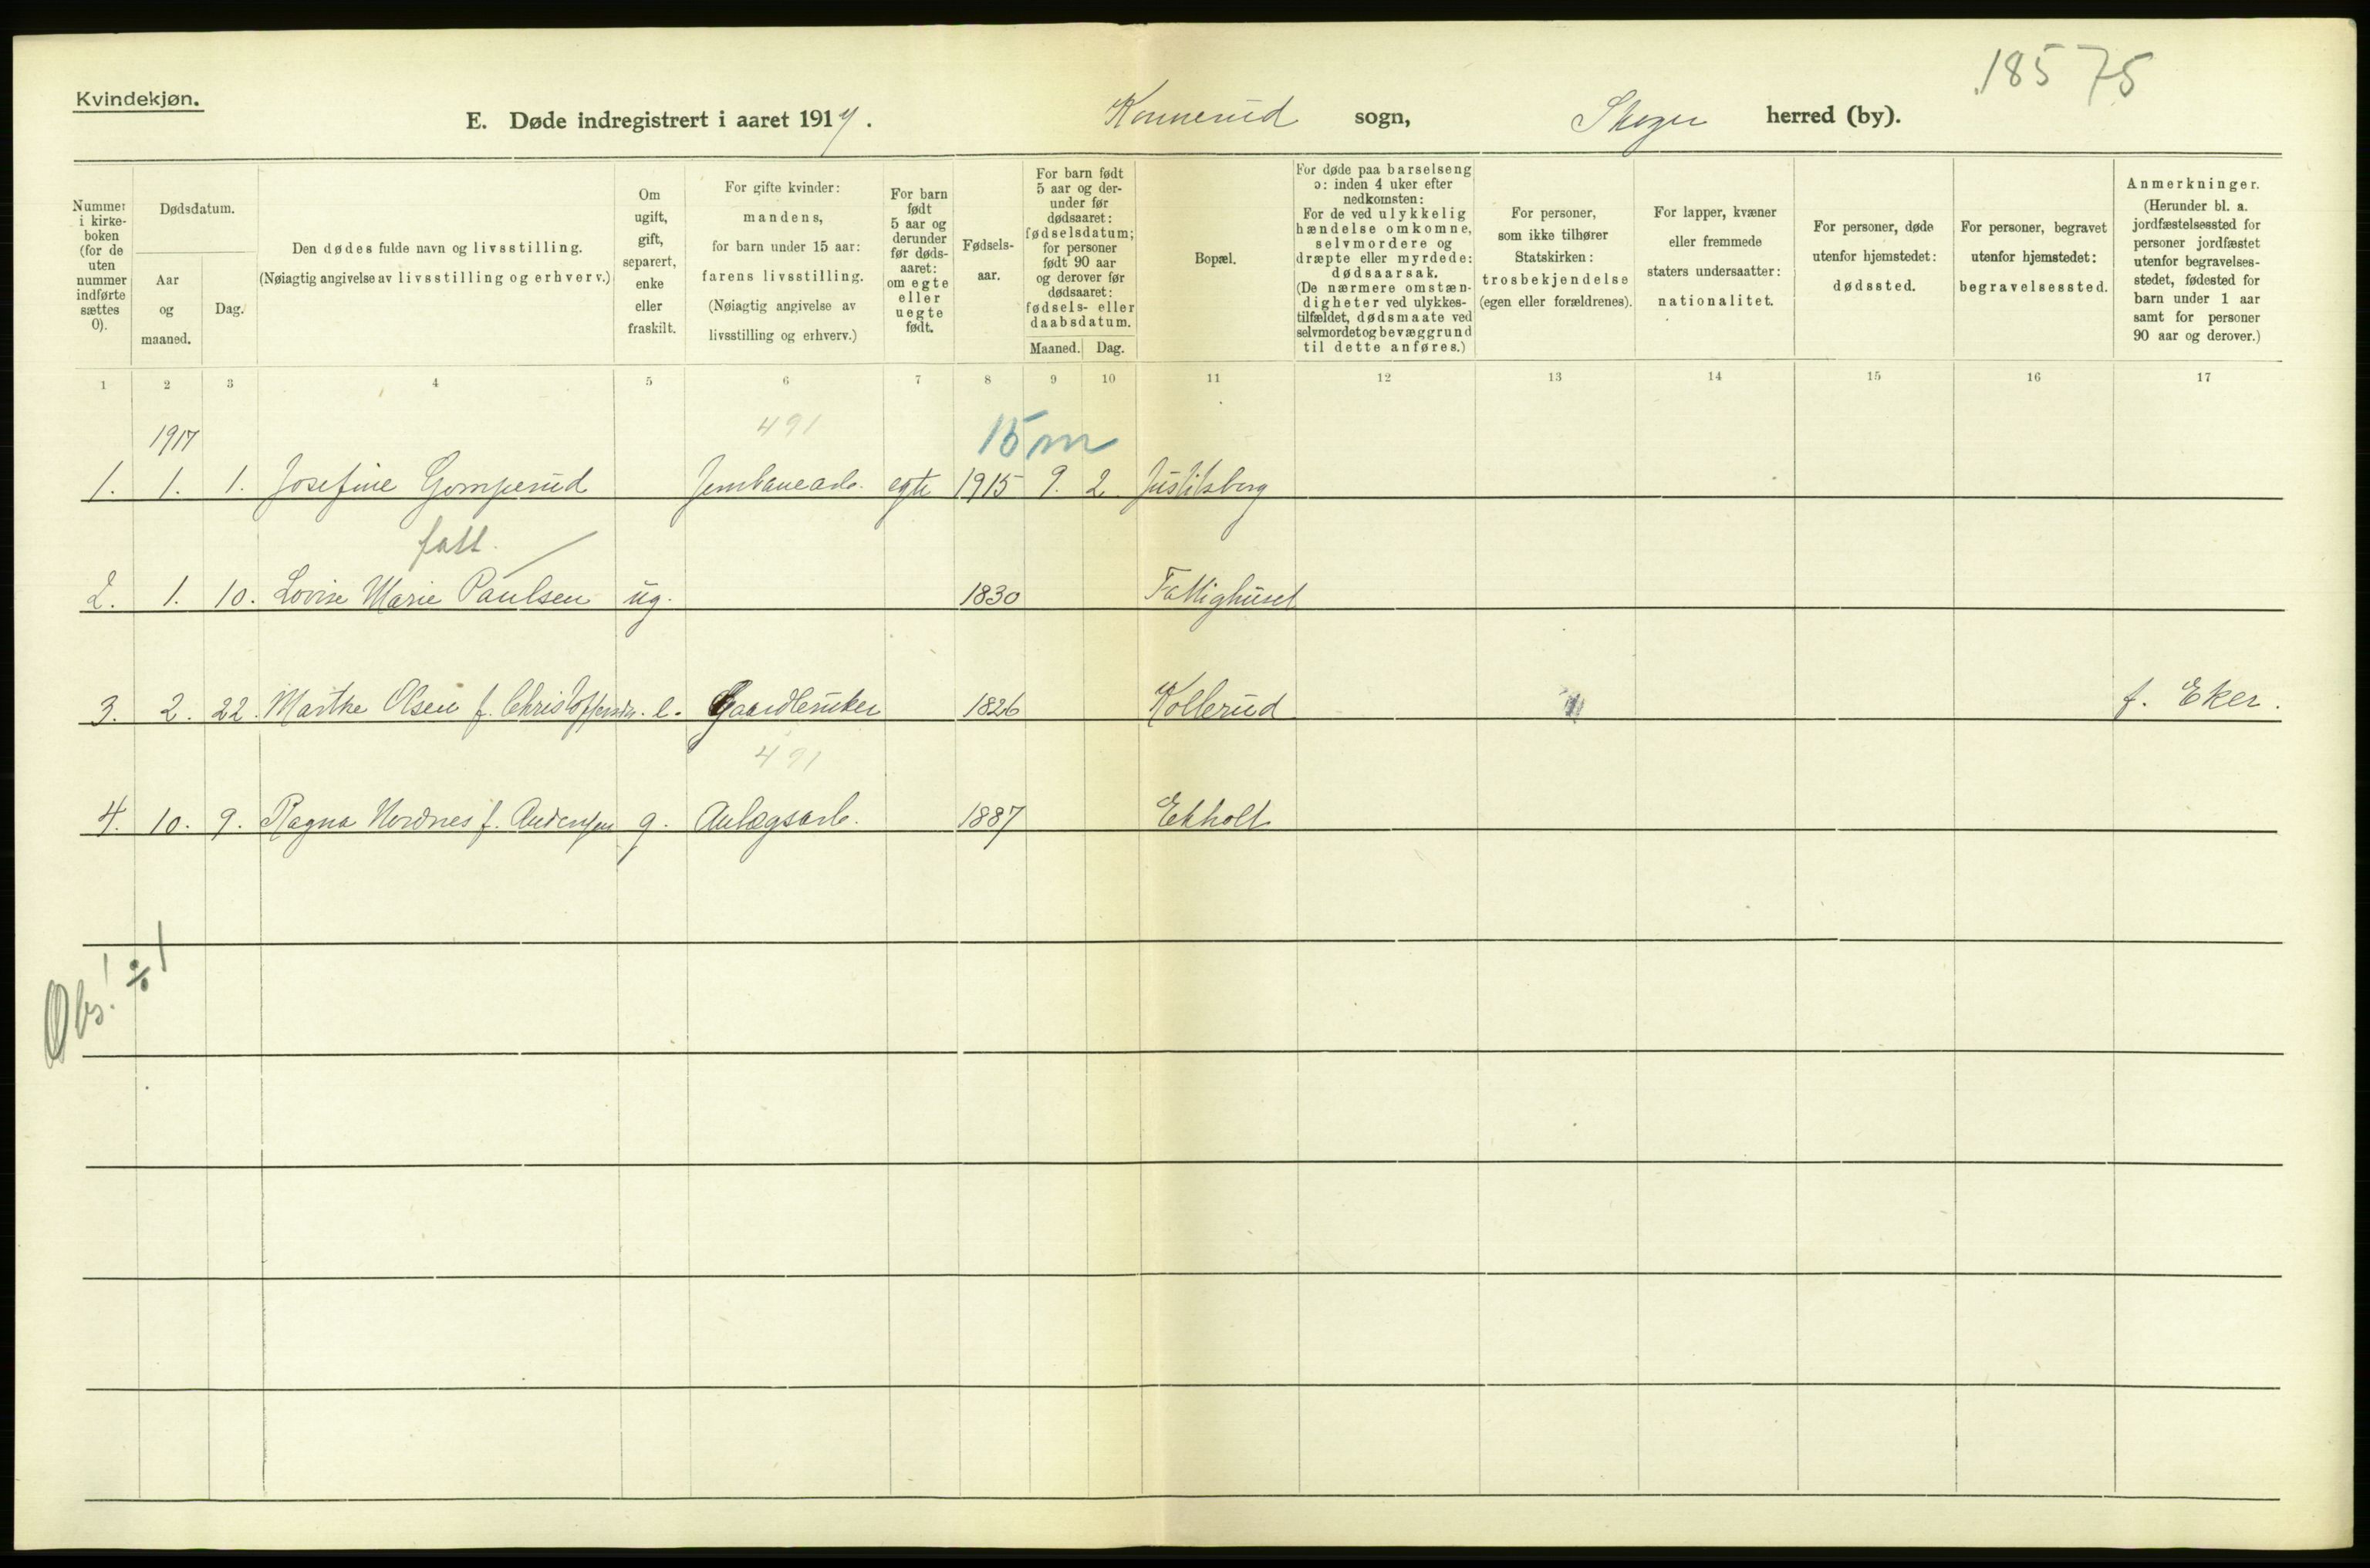 18575
Kvindekjøn.
E. Døde indregistrert i aaret 1917. Konnerud sogn, Skoger herred (by).
Nummer i kirkeboken (for de uten nummer indførte sættes 0).
Dødsdatum.
Aar og maaned.
Dag.
Den dødes fulde navn og livsstilling.
(Nøiagtig angivelse av livsstilling og erhverv.)
Om ugift, gift, separert, enke eller fraskilt.
For gifte kvinder:
mandens,
for barn under 15 aar:
farens livsstilling.
(Nøiagtig angivelse av
livsstilling og erhverv.)
For barn født 5 aar og derunder før dødsaaret: om egte eller uegte født.
Fødselsaar.
For barn født
5 aar og derunder før
dødsaaret:
fødselsdatum;
for personer
født 90 aar
og derover før
dødsaaret:
fødsels- eller
daabsdatum.
Maaned.
Dag.
Bopæl.
For døde paa barselseng
ɔ: inden 4 uker efter
nedkomsten:
For de ved ulykkelig
hændelse omkomne,
selvmordere og
dræpte eller myrdede:
dødsaarsak.
(De nærmere omstændigheter ved ulykkestilfældet, dødsmaate ved
selvmordet og bevæggrund
til dette anføres.)
For personer,
som ikke tilhører
Statskirken:
trosbekjendelse
(egen eller forældrenes).
For lapper, kvæner
eller fremmede
staters undersaatter:
nationalitet.
For personer, døde
utenfor hjemstedet:
dødssted.
For personer, begravet
utenfor hjemstedet:
begravelsessted.
Anmerkninger.
(Herunder bl. a.
jordfæstelsessted for
personer jordfæstet
utenfor begravelsesstedet, fødested for
barn under 1 aar
samt for personer
90 aar og derover.)
1 2 3 4 5 6 7 8 9 10 11 12 13 14 15 16 17
1917 491 15 m
1. 1. 1. Josefine Gomperud Jernbanearb. egte 1915 9. 2 Justitsberg
fatt.
2. 1. 10. Lovise Marie Paulsen ug. 1830 Fattighuset
3. 2. 22. Marthe Olsen f. Christoffersdr. e. Gaardbruker 1826 Kollerud f. Eker.
491
4. 10. 9. Ragna Nordnes f. Andersen g. Anlægsarb. 1887 Ekholt
Obs! ÷ 1